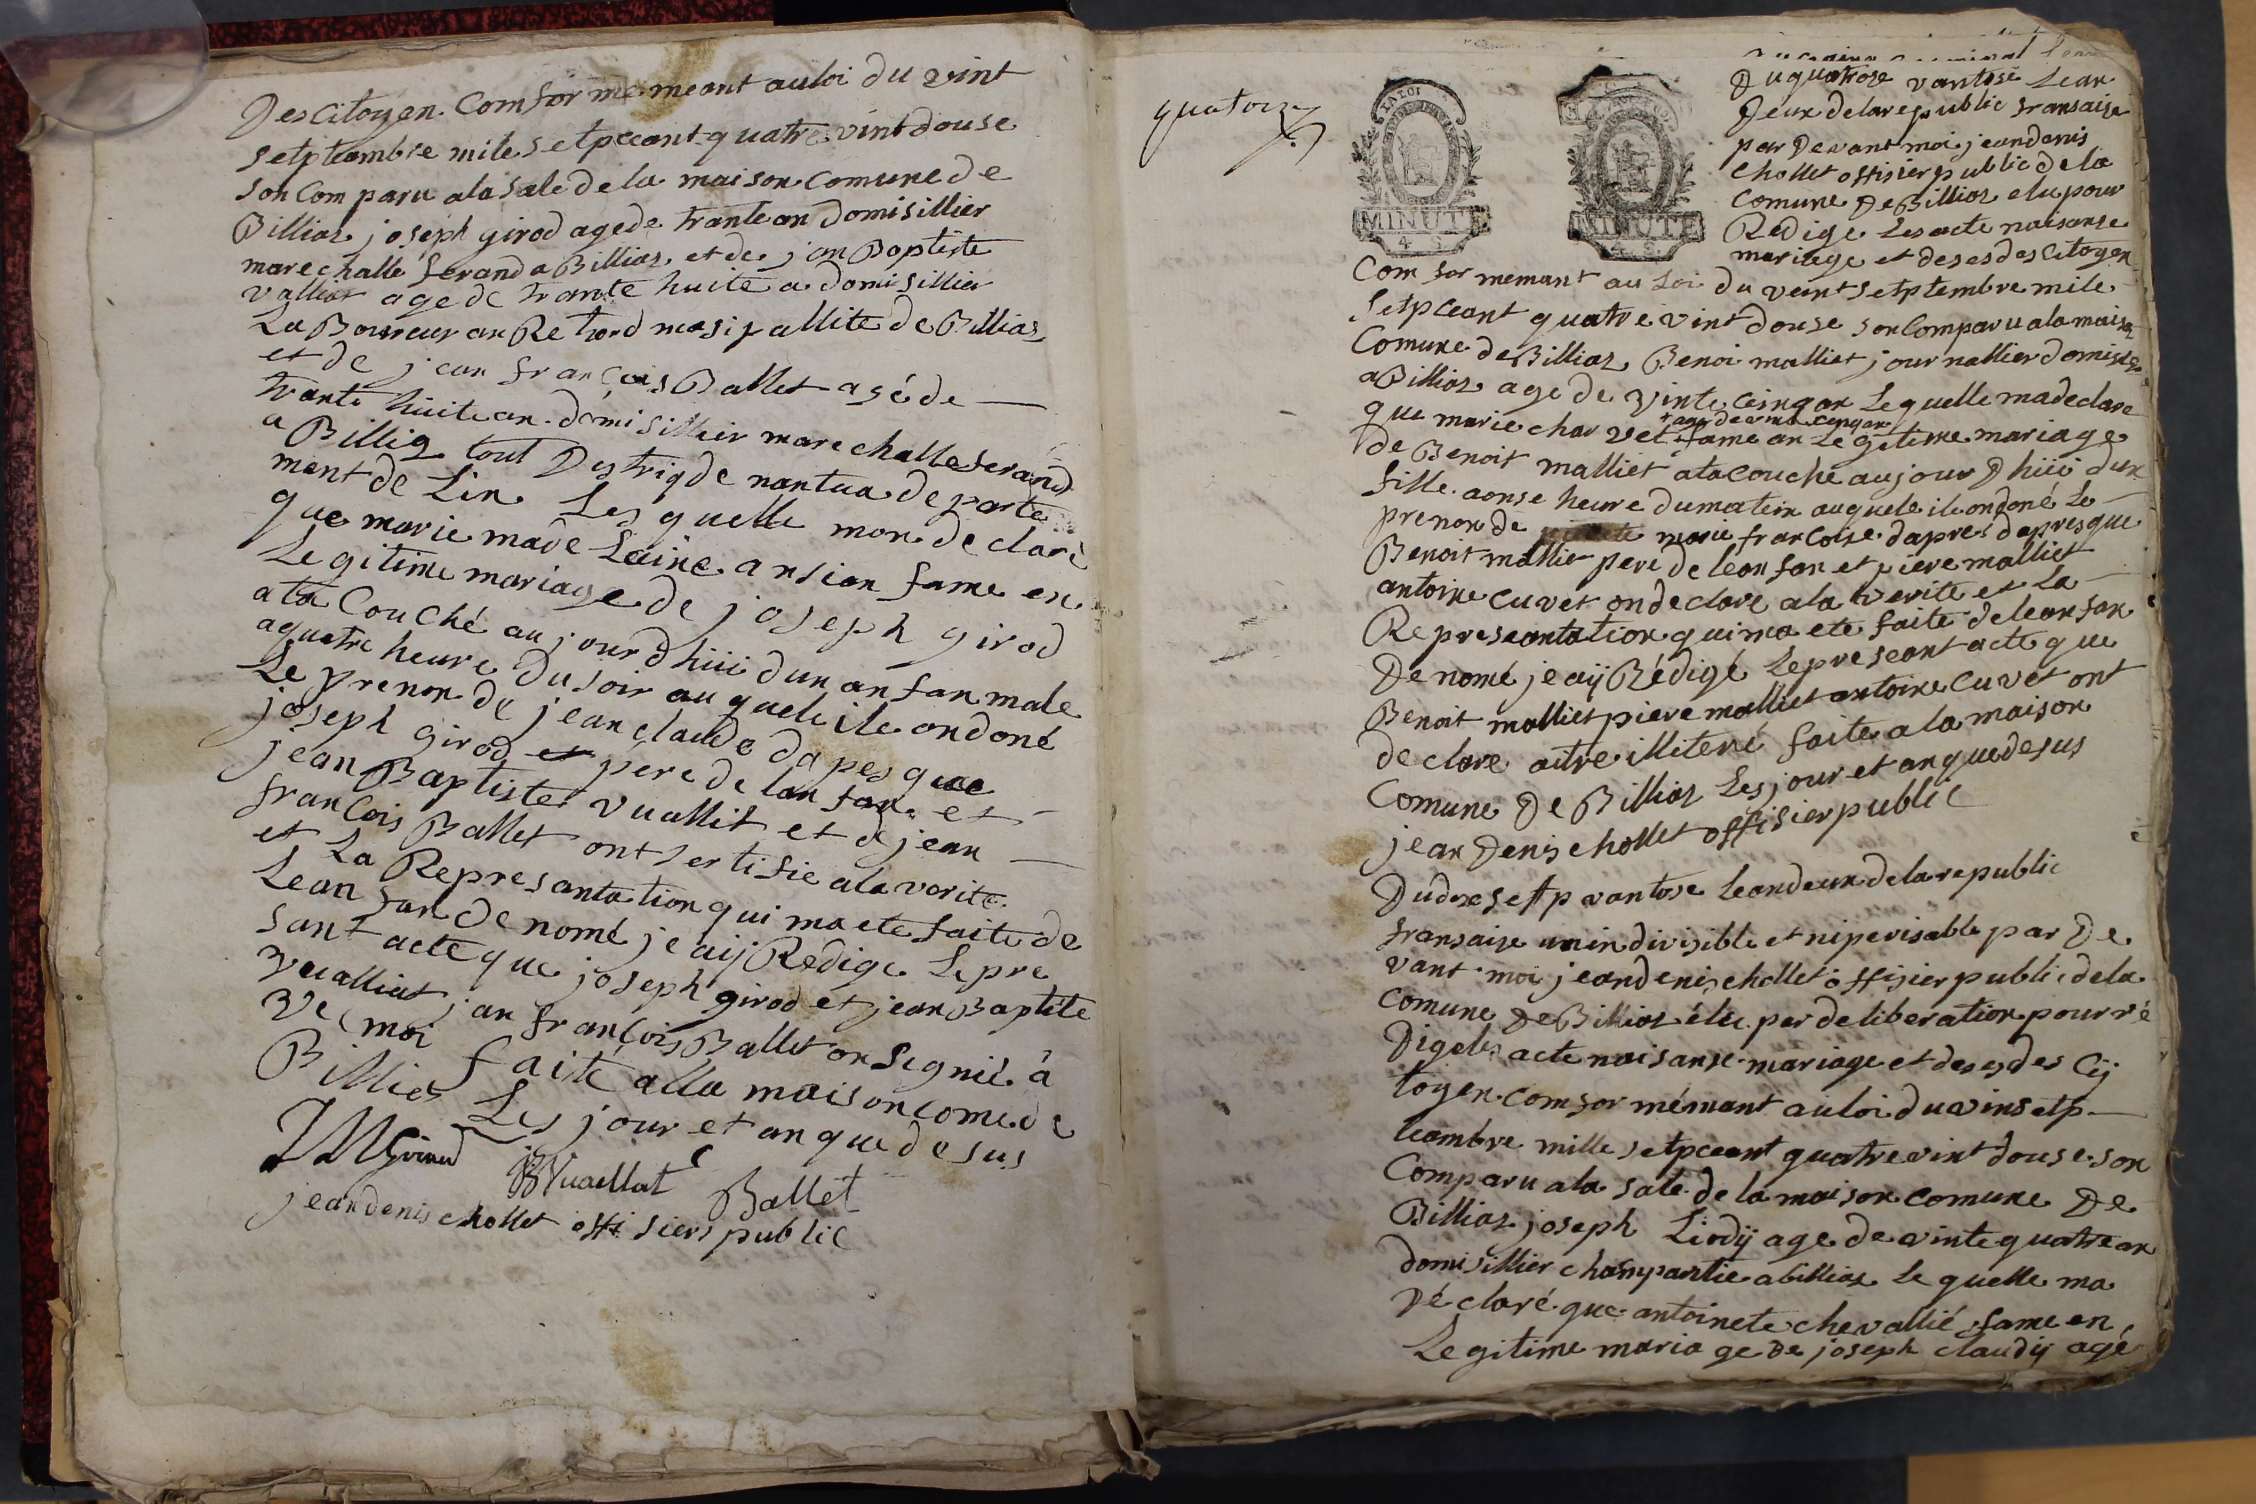 Des Citoyen. Comformemeant auloi du vint
setptambre mile setpceant quatre vint douse
son Comparu ala sale de la maison Comune de
Billiaz joseph girod agede trante an domisillier
marechalle ferand a Billiaz et de jan Baptiste
valliat age de trante huite a domisillier
La Boureur au Retord masipallite de Billiaz
et de jean françois Ballet agé de
trante huite an domisillier marechalle ferand
a Billiaz tout Destriq de nantua departe
ment de Lin Les quelle mon de claré
que marie madeLaine ansion fame en
Legitime mariage de joseph girod
ata Couché aujour dhiii dun anfan male
aquatre heure Dusoir auquele ile ondoné
Le prenon de jean claude dapes que
joseph girod et pere de lanfan et
jean Baptiste vuallit et de jean
françois Ballet ont sertifie ala vorite
et La Represantation qui ma ete faite de
Leanfan de nomé je aij Redige Lepre
sant acte que joseph girod et jean Baptite
vualliat jan françois Ballet on segnié à
ve( moi faité alla maison comede
Billiaz Les jour et an que desus
JMGirod
JBVuaillat Ballet
jeandenis chollet offisiers public
quatorze
LA LOI
MINUTE
4 S
MINUTE
4 S
Du quatrose vantose Lean
Deux delarepublic fransaise
par Devant moi jeandenis
chollet offisier public de la
Comune De Billiaz elu pour
Redige Les acte naisanse
mariage et deses des Citoyen
Comformemant au Loi du veint setptembre mile
Setpceant quatre vint douse son Comparu ala maison
Comune de Billiaz Benoi malliet journallier domisile
a Billiaz age de vinte cinq an Lequelle madeclare
+ age de vinte cinq an
que marie charvet + fame an Legitime mariage
de Benoit malliet ata couché aujour Dhiii dune
fille aonse heure dumatin auquele ile ondoné Le
prenon de marie francoise dapres dapresque
Benoit malliet pere de leanfan et piere malliet
antoine cuvet ondeclare ala verite et La
Represeantation qui ma ete faite deleanfan
De nomé je aij Rédigé Lepreseant acte que
Benoit malliet piere malliet antoine cuvet ont
declare aitre illiteré faite ala maison
Comune De Billiaz Les jour et an quedesus
jean Denis chollet offisier public
Dudixsetp vantose Leandeux delarepublic
fransaise unindivisible et niperisable par De
vant moi jeandenis chollet offisier public dela
Comune De Billiaz élu par deliberation pour ré
Digeles acte naisanse mariage et deses des Cij
toyen Comformémant auloi du vinsetp
teambre mille setpceant quatrevint douse son
Comparu ala sale de la maison comune De
Billiaz joseph Liodij age de vinte quatre an
domisillier champantie abilliaz Le quelle ma
Déclaré que antoinete chevallié fame en
Legitime maria ge De joseph claudij agé